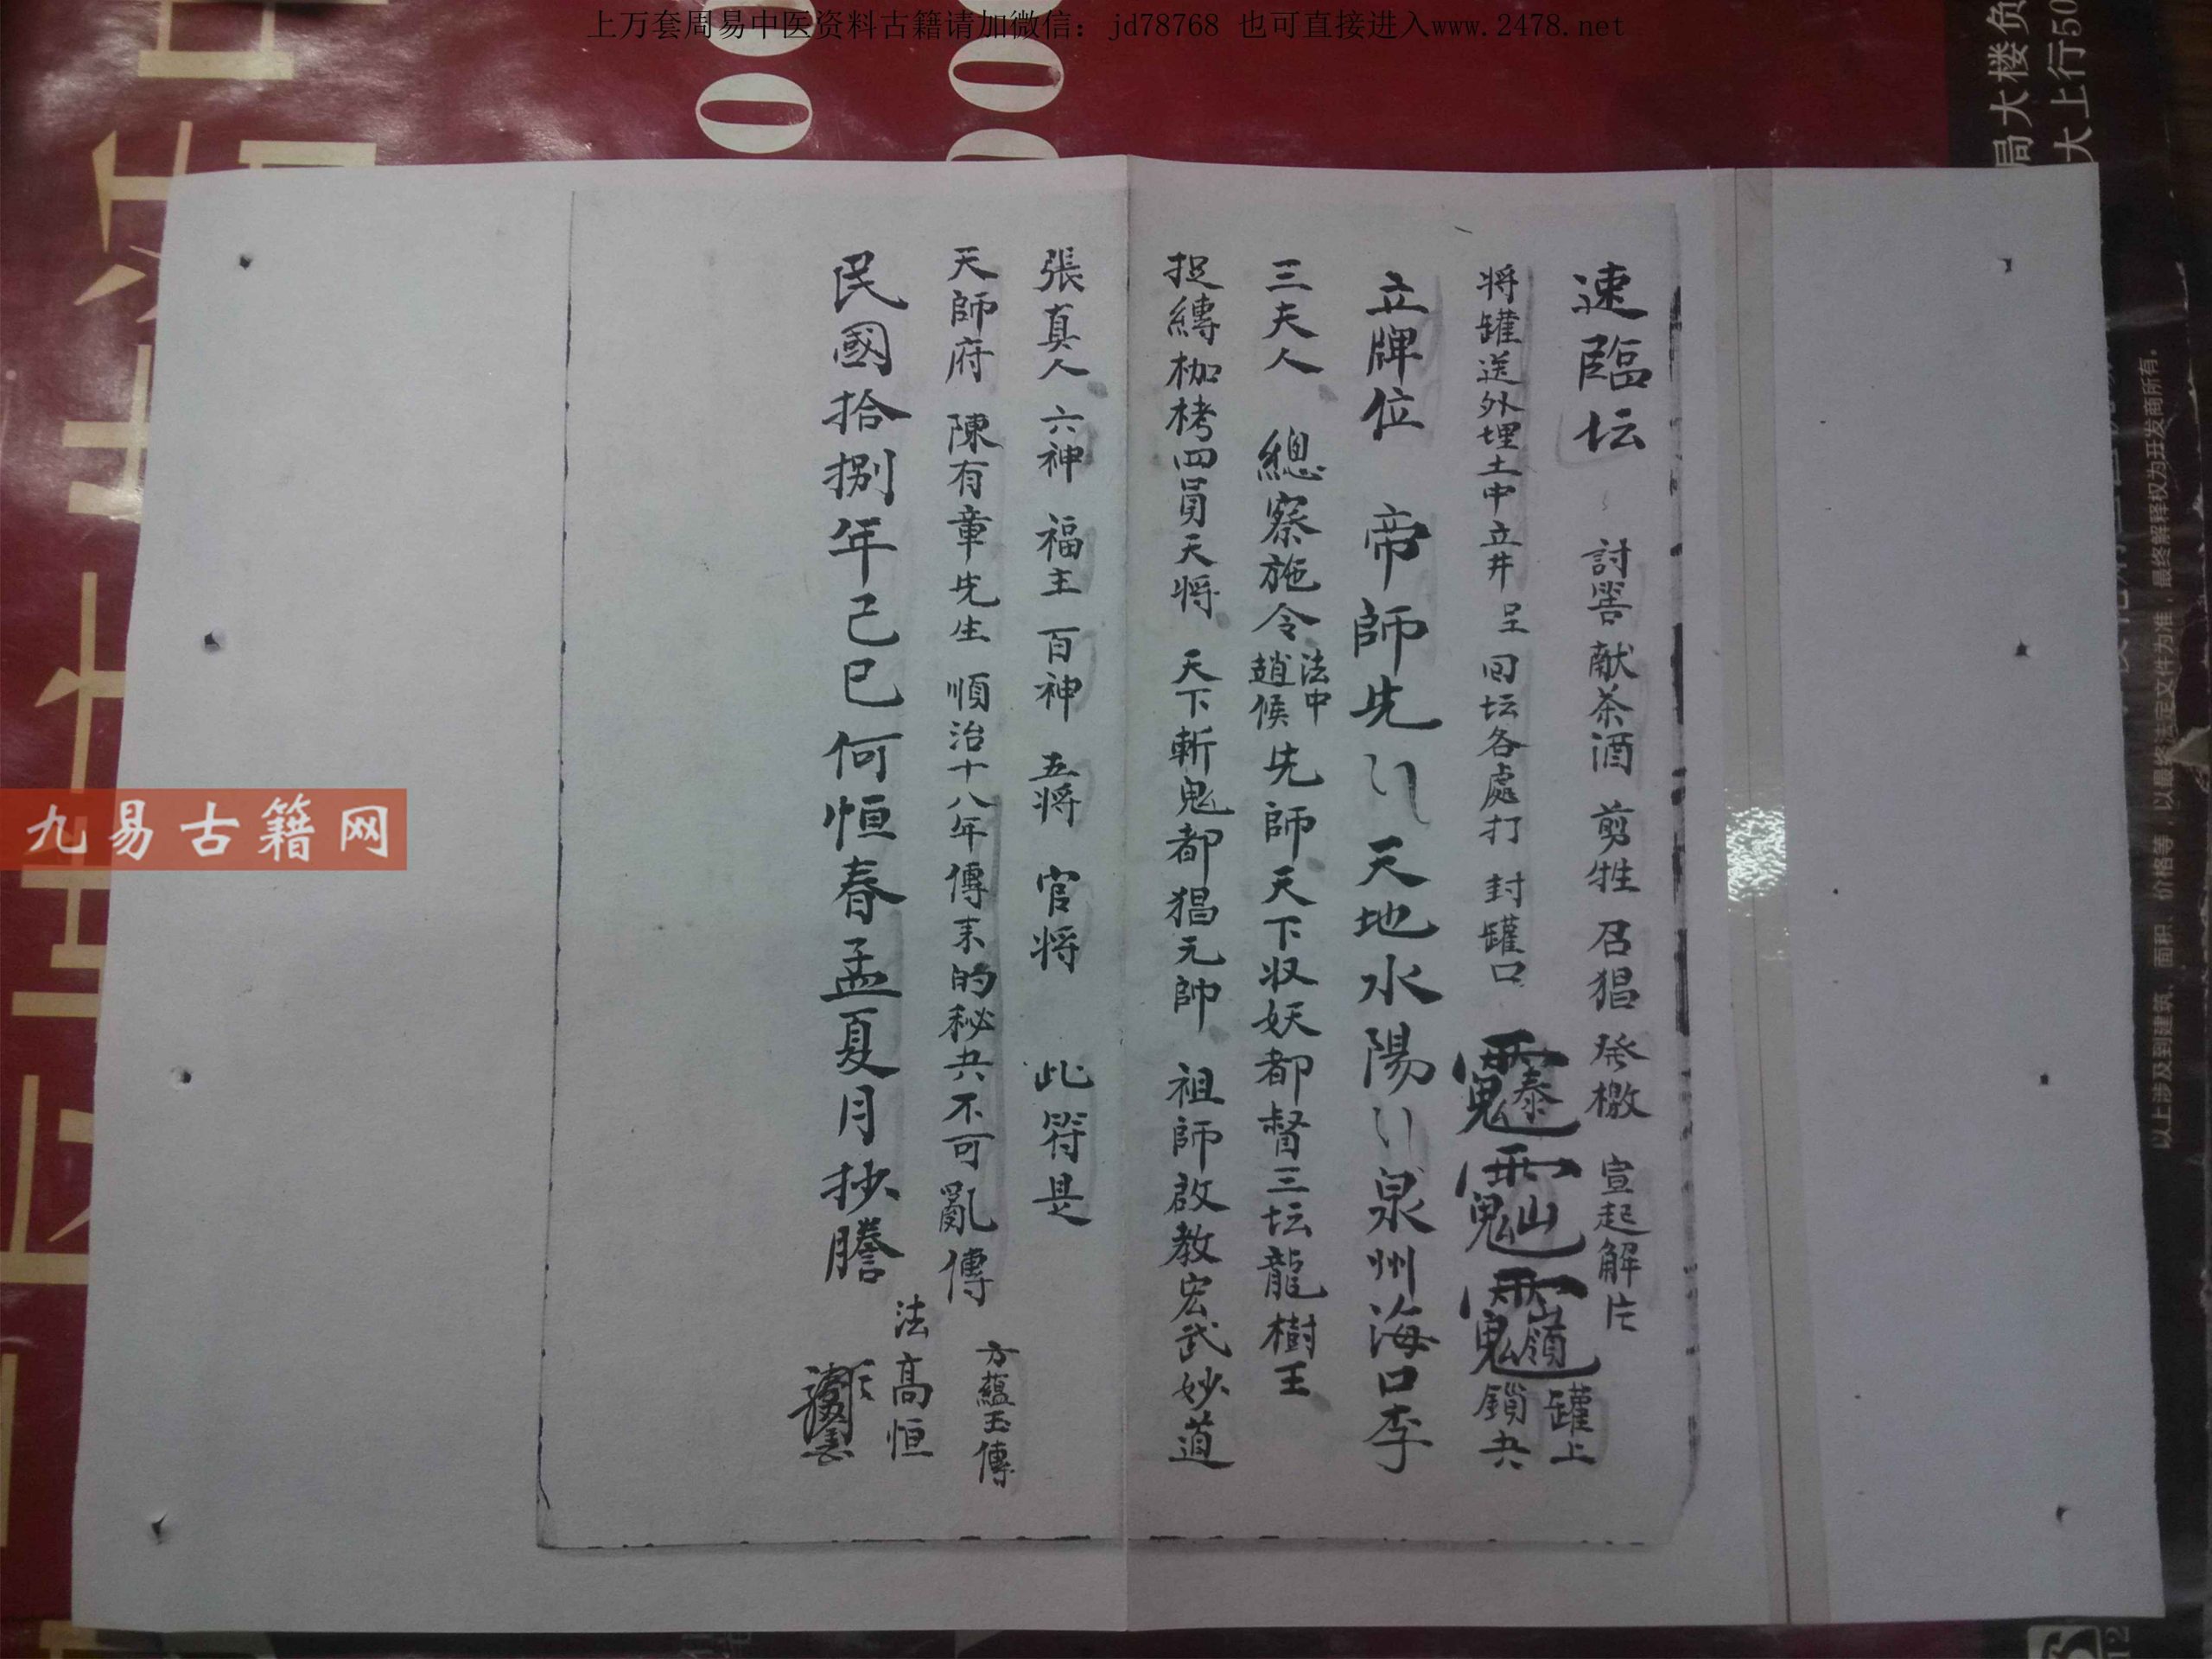 上万套周易中医资料古籍请加微信：jd78768 也可直接进入www.2478.net
速臨坛 討筶 献茶酒 剪牲 召猖 発檄 宣起解片
将罐送外埋土中立井 呈 回坛各處打 封罐口 罐上鎖共
立牌位 帝師先 天地水陽 泉州海口李
三夫人 總察施令 法中趙候先師 天下収妖都督三坛龍樹王
捉縛枷栲四員天将 天下斬鬼都猖元帥 祖師啟教宏武妙道
張真人 六神 福主 百神 五将 官将 此符是
天師府 陳有章先生 順治十八年傳来的秘共不可亂傳 方蘊玉傳
民國拾捌年己巳何恒春孟夏月抄謄 法高恒
九易古籍网
局大楼负
大上行50
以上涉及到建筑、面积、价格等，以最终法定文件为准，最终解释权为开发商所有。